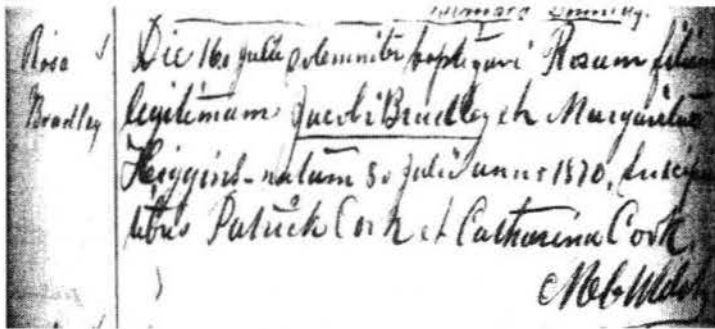 Rosa
Bradley
Die 16o Julii solemniter baptizavi Rosam filiam
legitimam Jacobi Bradley et Margaritae
Higgins - natam 5o Julii anno 1870, suscipien
tibus Patrick Cork et Catharina Cork